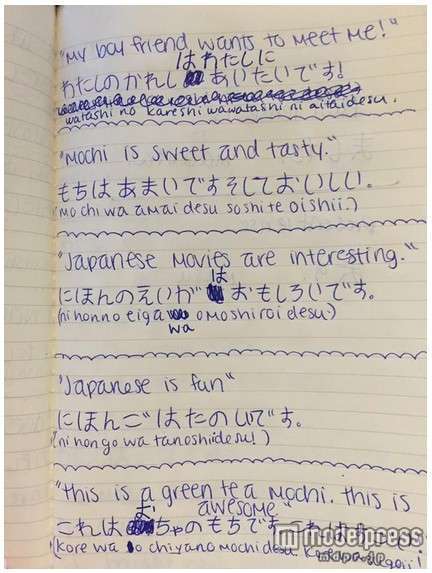 "My boy friend wants to meet me!"
はわたしに
わたしのかれし あいたいです!
watashi no kareshi wa watashi ni aitai desu.
"Mochi is sweet and tasty."
もちは あまいです そして おいしい。
(mo chi wa amai desu soshite oishii.)
"Japanese movies are interesting."
は
にほんのえいが おもしろいです。
(ni honno eiga omoshiroi desu.)
wa
"Japanese is fun"
にほんご はたのしいです。
(ni hon go wa tanoshiidesu!)
"this is a green tea mochi. this is
お awesome"
これは ちゃのもちです
(kore wa o chiyano mochi desu.
modelpress